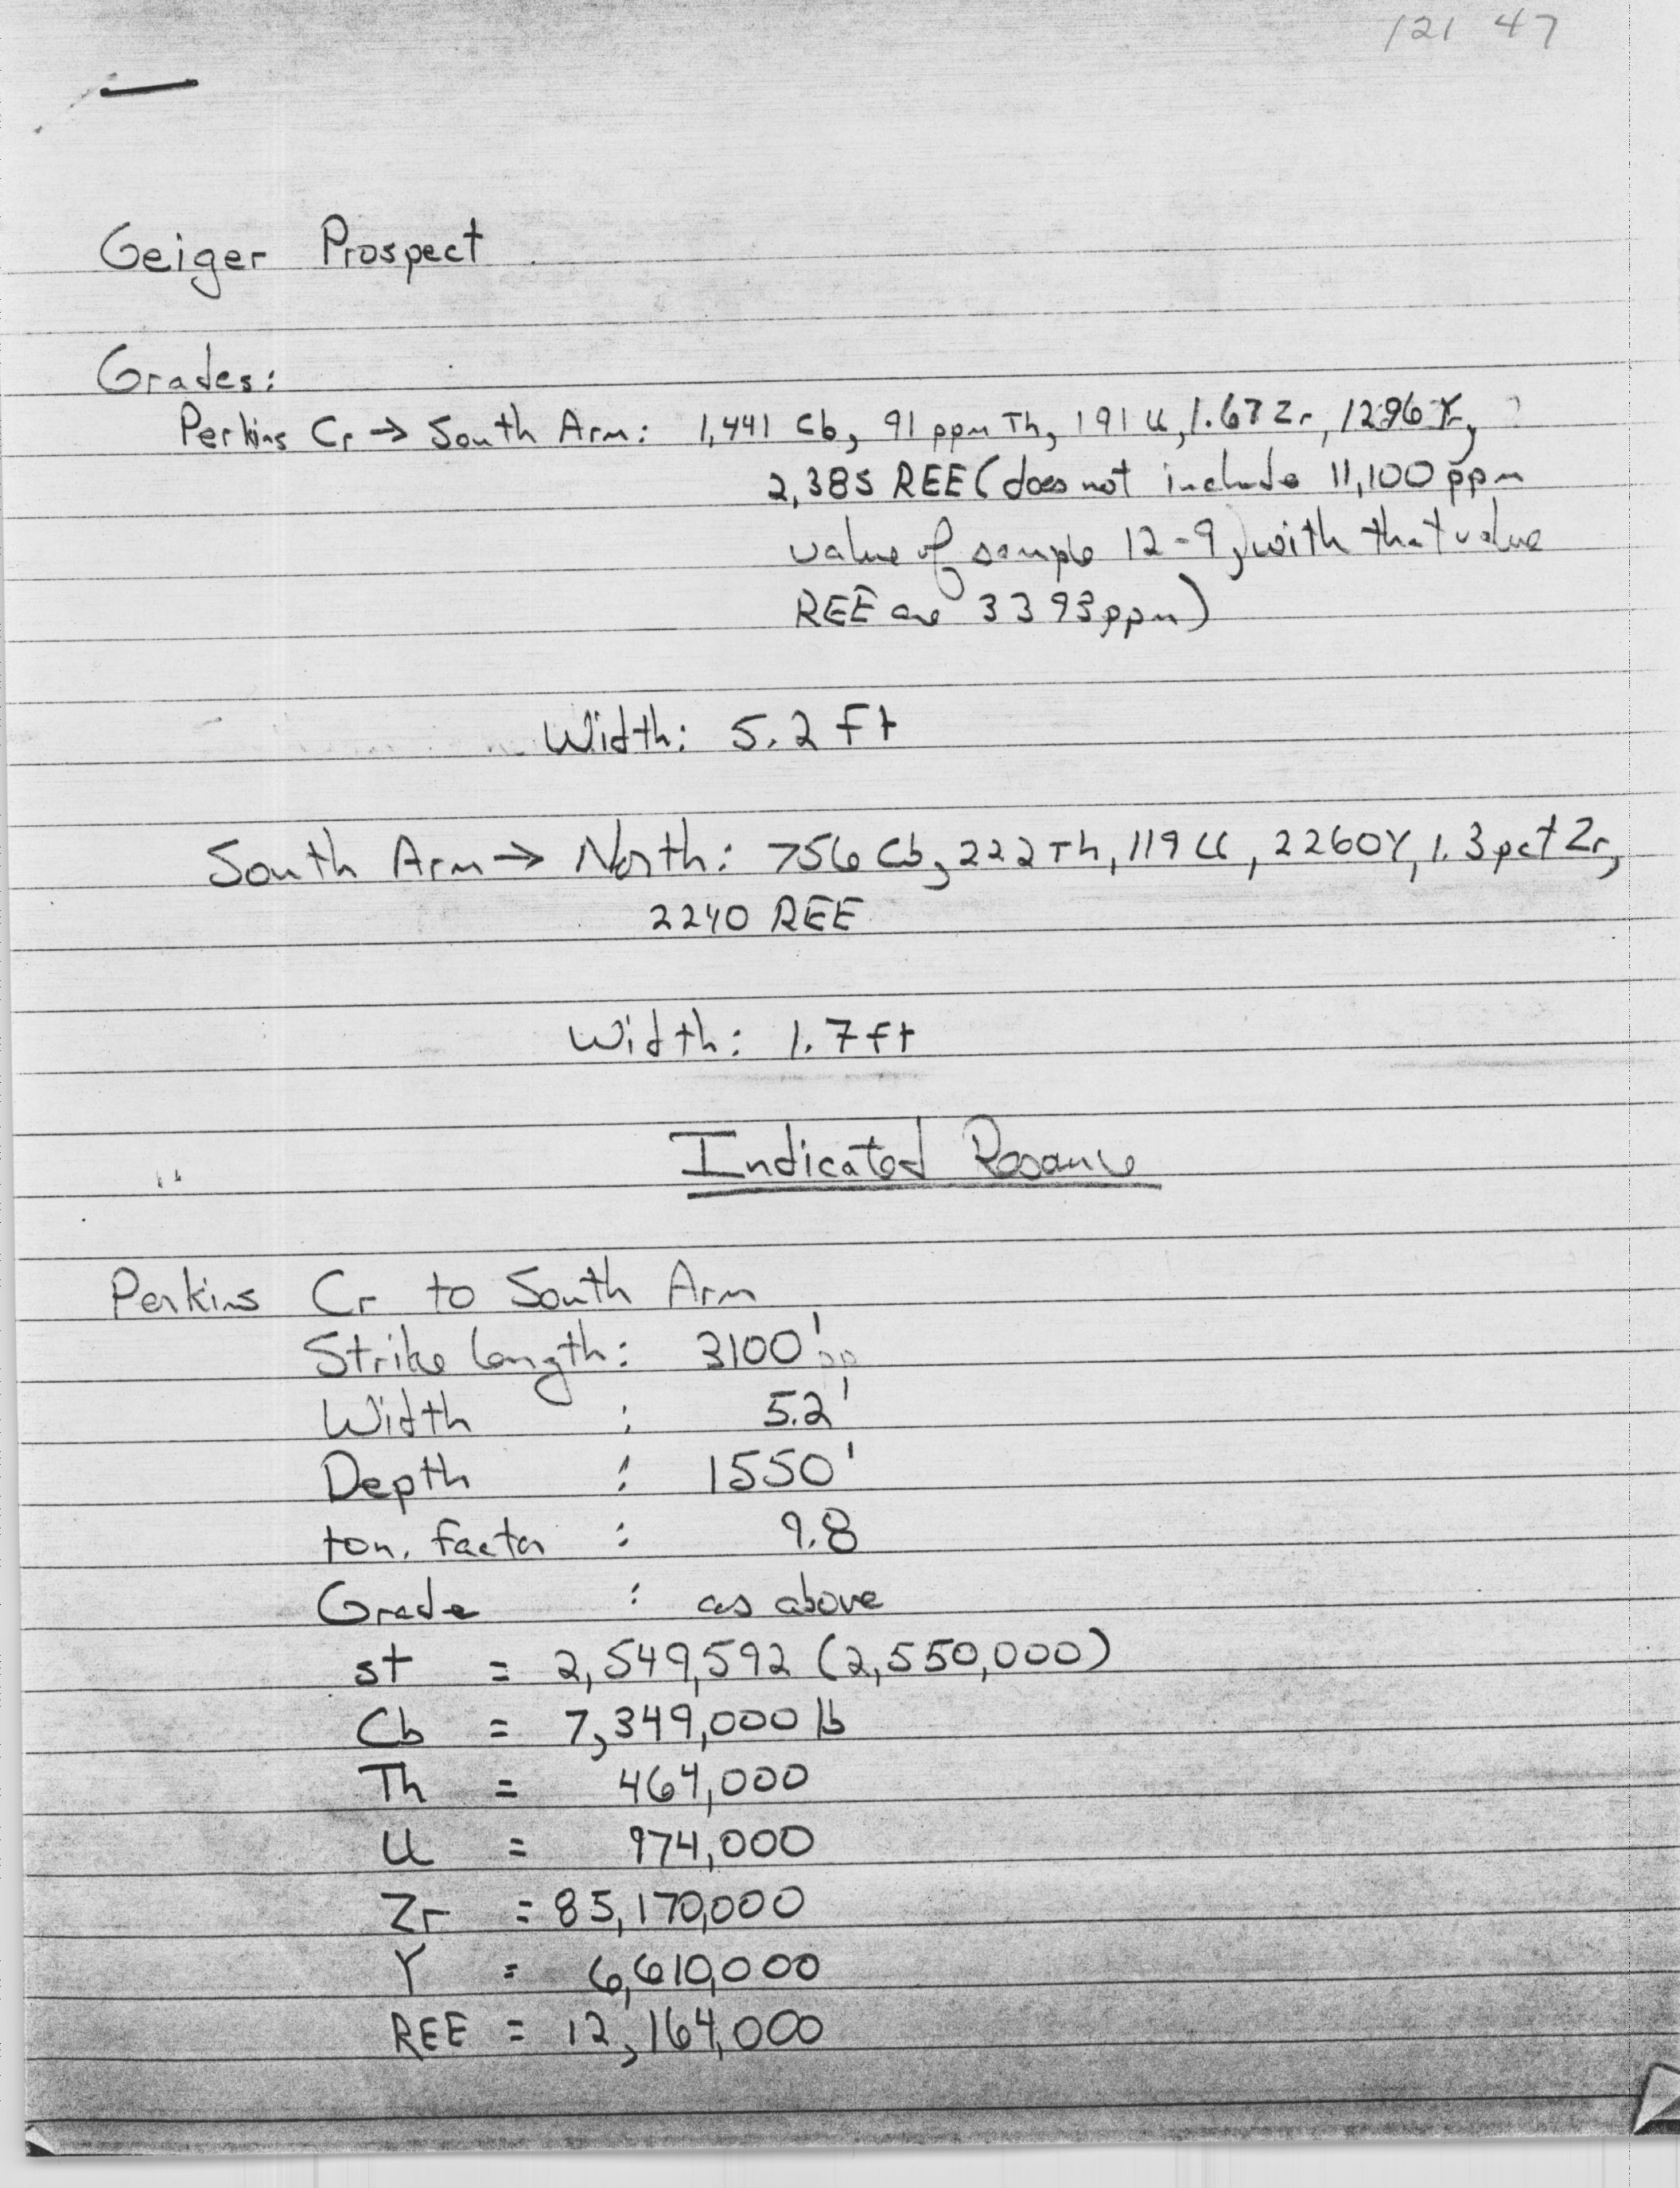 121 47
Geiger Prospect
Grades:
Perkins Cr → South Arm: 1,441 Cb, 91 ppm Th, 191 U, 1.67 Zr, 1296 Y, ?
2,385 REE (does not include 11,100 ppm
value of sample 12-9, with that value
REE are 3393 ppm)
Width: 5.2 Ft
South Arm → North: 756 Cb, 222 Th, 119 U, 2260 Y, 1.3 pct Zr,
2240 REE
Width: 1.7 ft
Indicated Resource
Perkins Cr to South Arm
Strike length: 3100'
Width : 5.2'
Depth : 1550'
ton. factor : 9.8
Grade : as above
st = 2,549,592 (2,550,000)
Cb = 7,349,000 lb
Th = 464,000
U = 974,000
Zr = 85,170,000
Y = 6,610,000
REE = 12,164,000